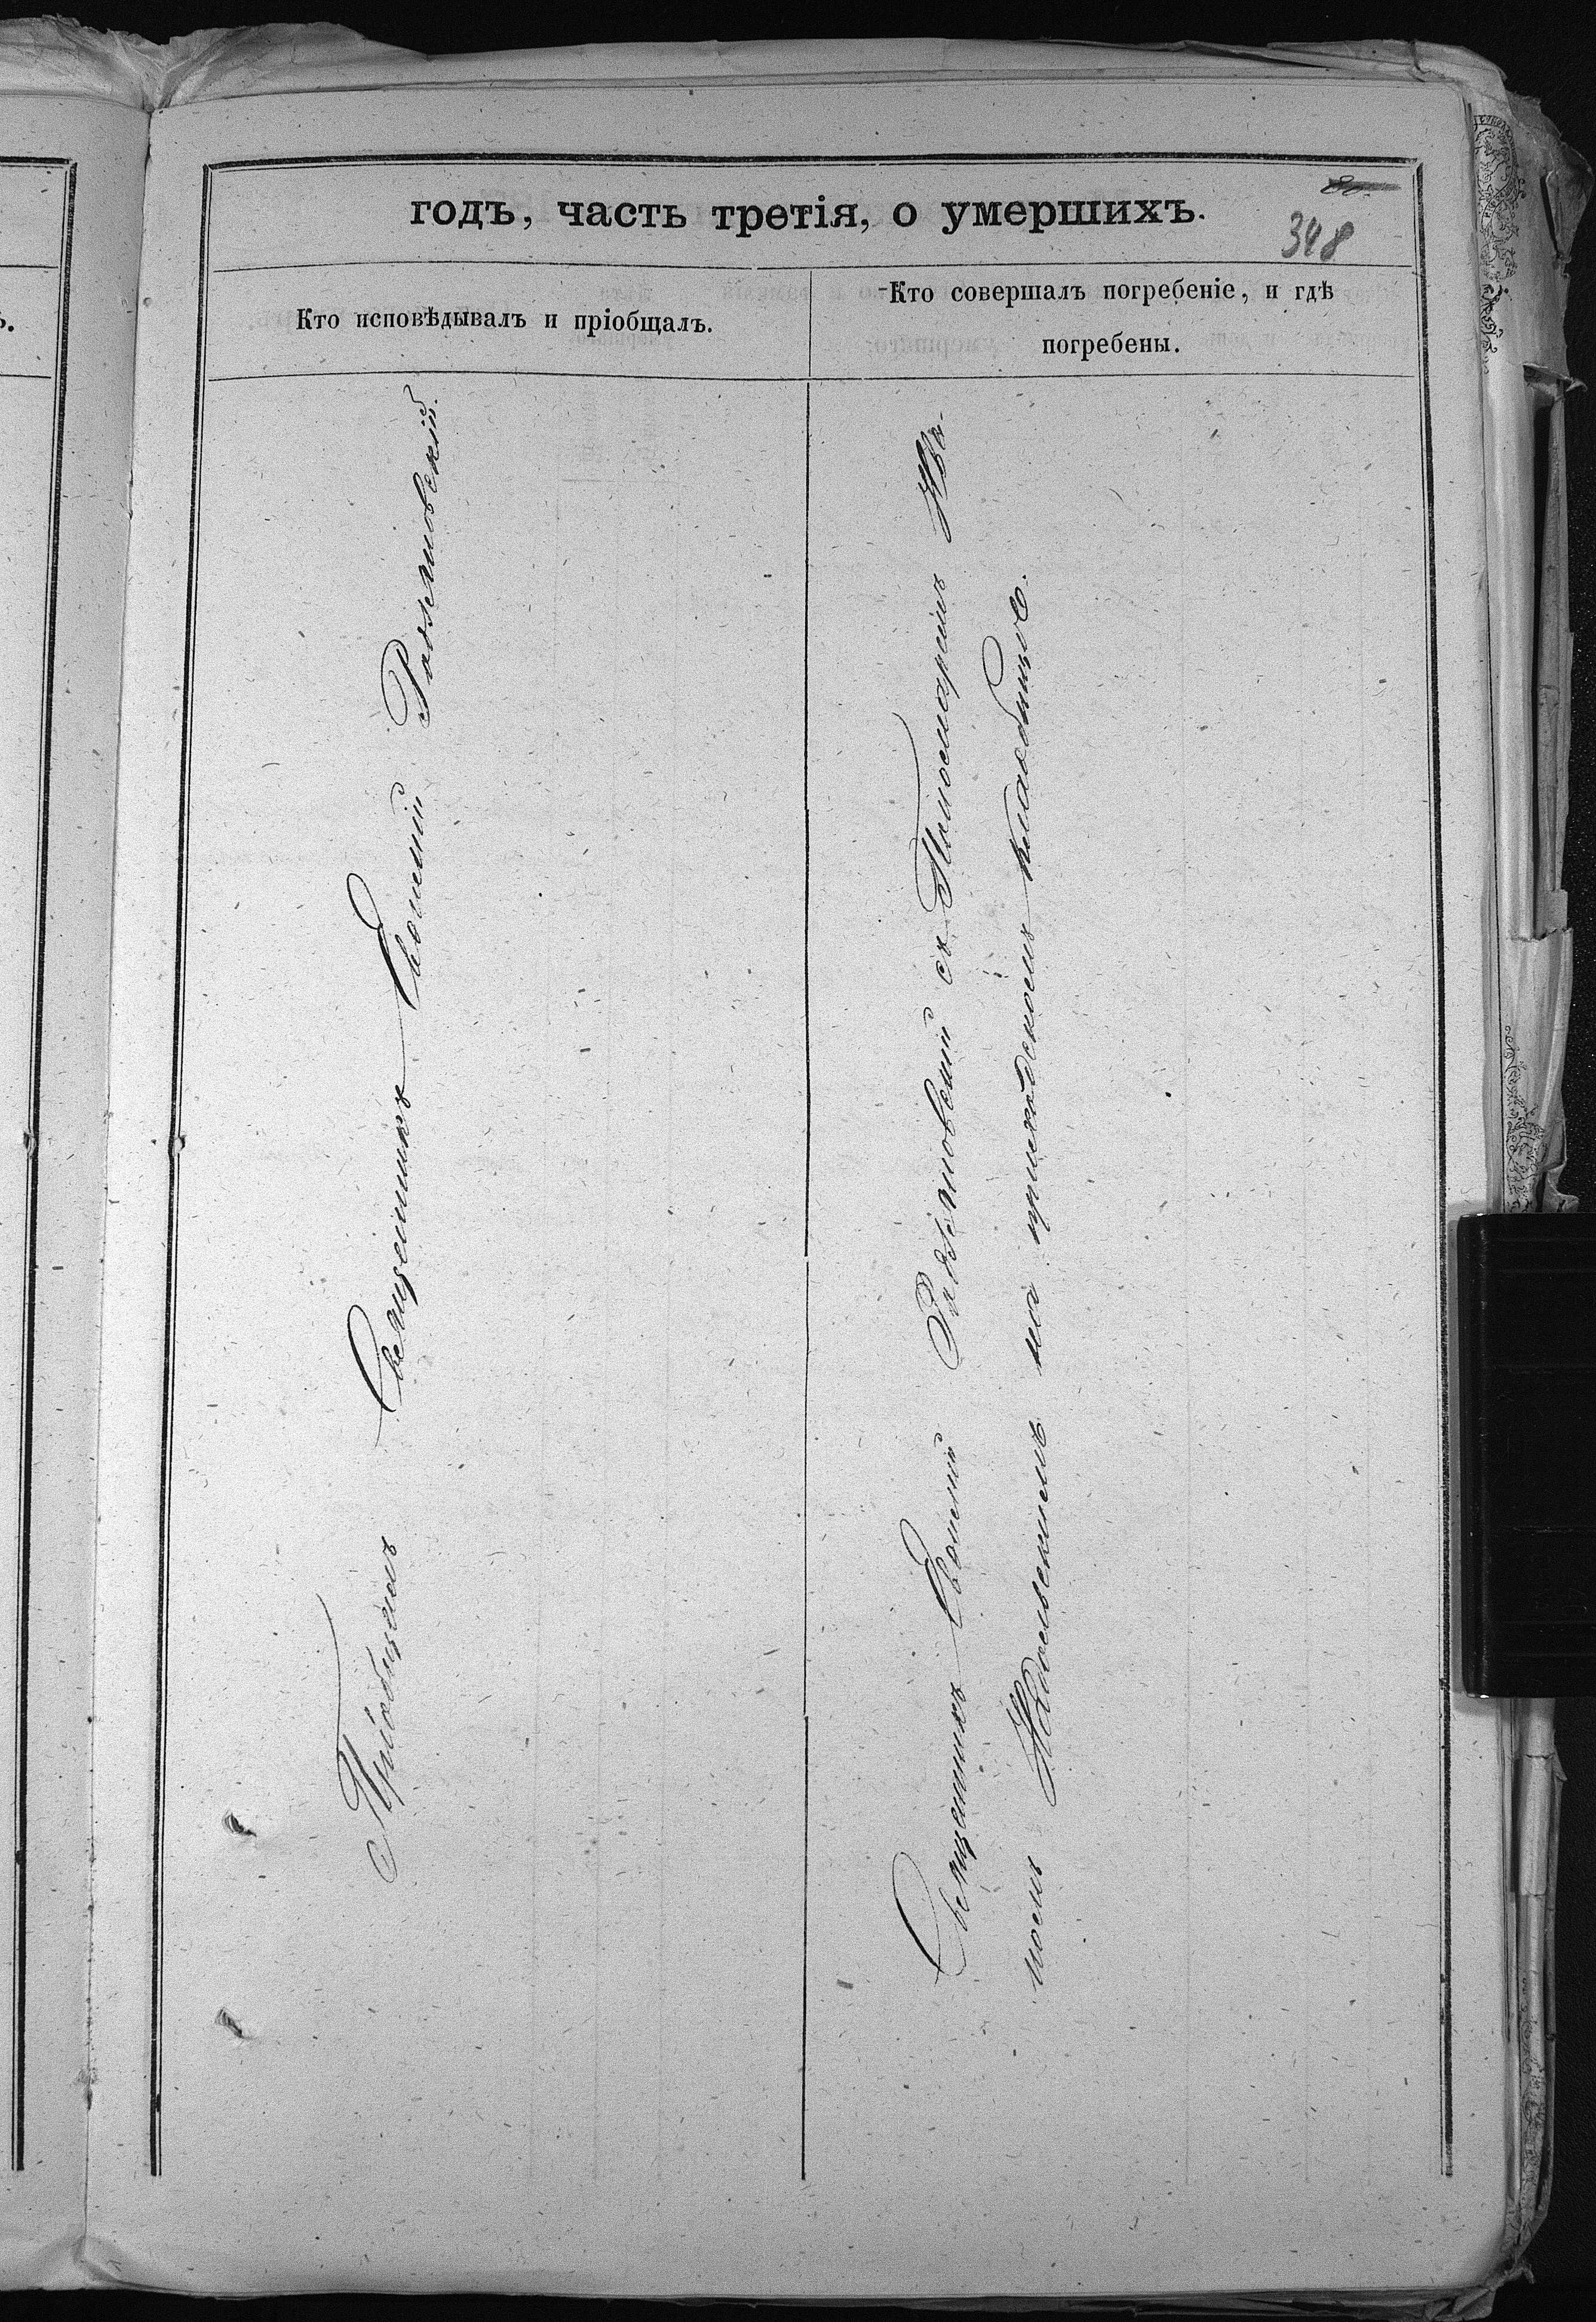 80.
годъ, часть третія, о умершихъ.
348
Кто исповѣдывалъ и пріобщалъ.
Кто совершалъ погребеніе, и гдѣ
погребены.
Пріобщалъ Священникъ Евгеній
Священникъ Евгеній съ Пономаремъ Ива-
номъ на приходскомъ кладбищѣ.